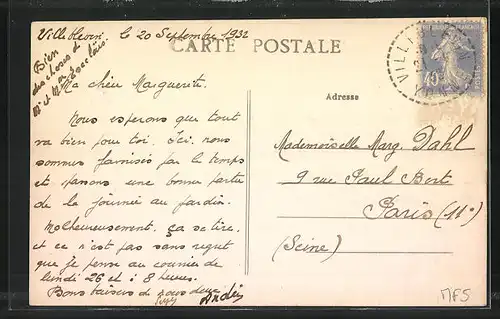 Villethierry le 20 Septembre 1932
CARTE POSTALE
Bien
des choses à
Mr et Mme
Ma chère Marguerite.
Nous espérons que tout
va bien pour toi. Ici, nous
sommes favorisés par le temps
et passons une bonne partie
de la journée au jardin.
Malheureusement, ça se tire,
et ce n'est pas sans regret
que je pense au courrier de
lundi 26 et à 8 heures.
Bons baisers de nous deux
André
Adresse
Mademoiselle Marg. Dahl
9 rue Paul Bert
Paris (11e)
(Seine)
40
MFS